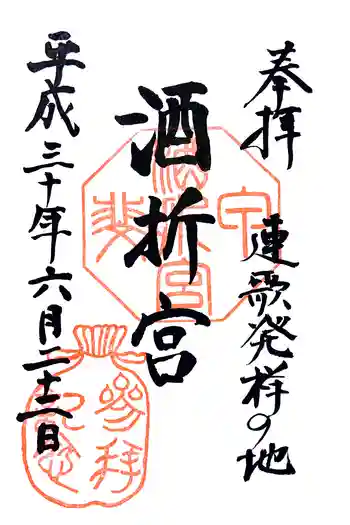 奉拝
連歌発祥の地
酒折宮
平成三十年六月二十二日
甲斐
酒折宮
參拝
記念